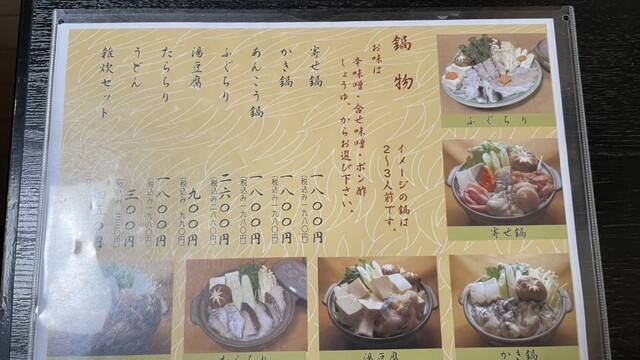 鍋物
お味は
辛味噌・合せ味噌・ポン酢
しょうゆ、からお選び下さい。
イメージの鍋は
2〜3人前です。
寄せ鍋 一八〇〇円
(税込み一九八〇円)
かき鍋 一八〇〇円
(税込み一九八〇円)
あんこう鍋 一八〇〇円
(税込み一九八〇円)
ふぐちり 二六〇〇円
(税込み二八六〇円)
湯豆腐 九〇〇円
(税込み九九〇円)
たらちり 一八〇〇円
(税込み一九八〇円)
うどん 三〇〇円
(税込み三三〇円)
雑炊セット
ふぐちり
寄せ鍋
かき鍋
湯豆腐
たらちり